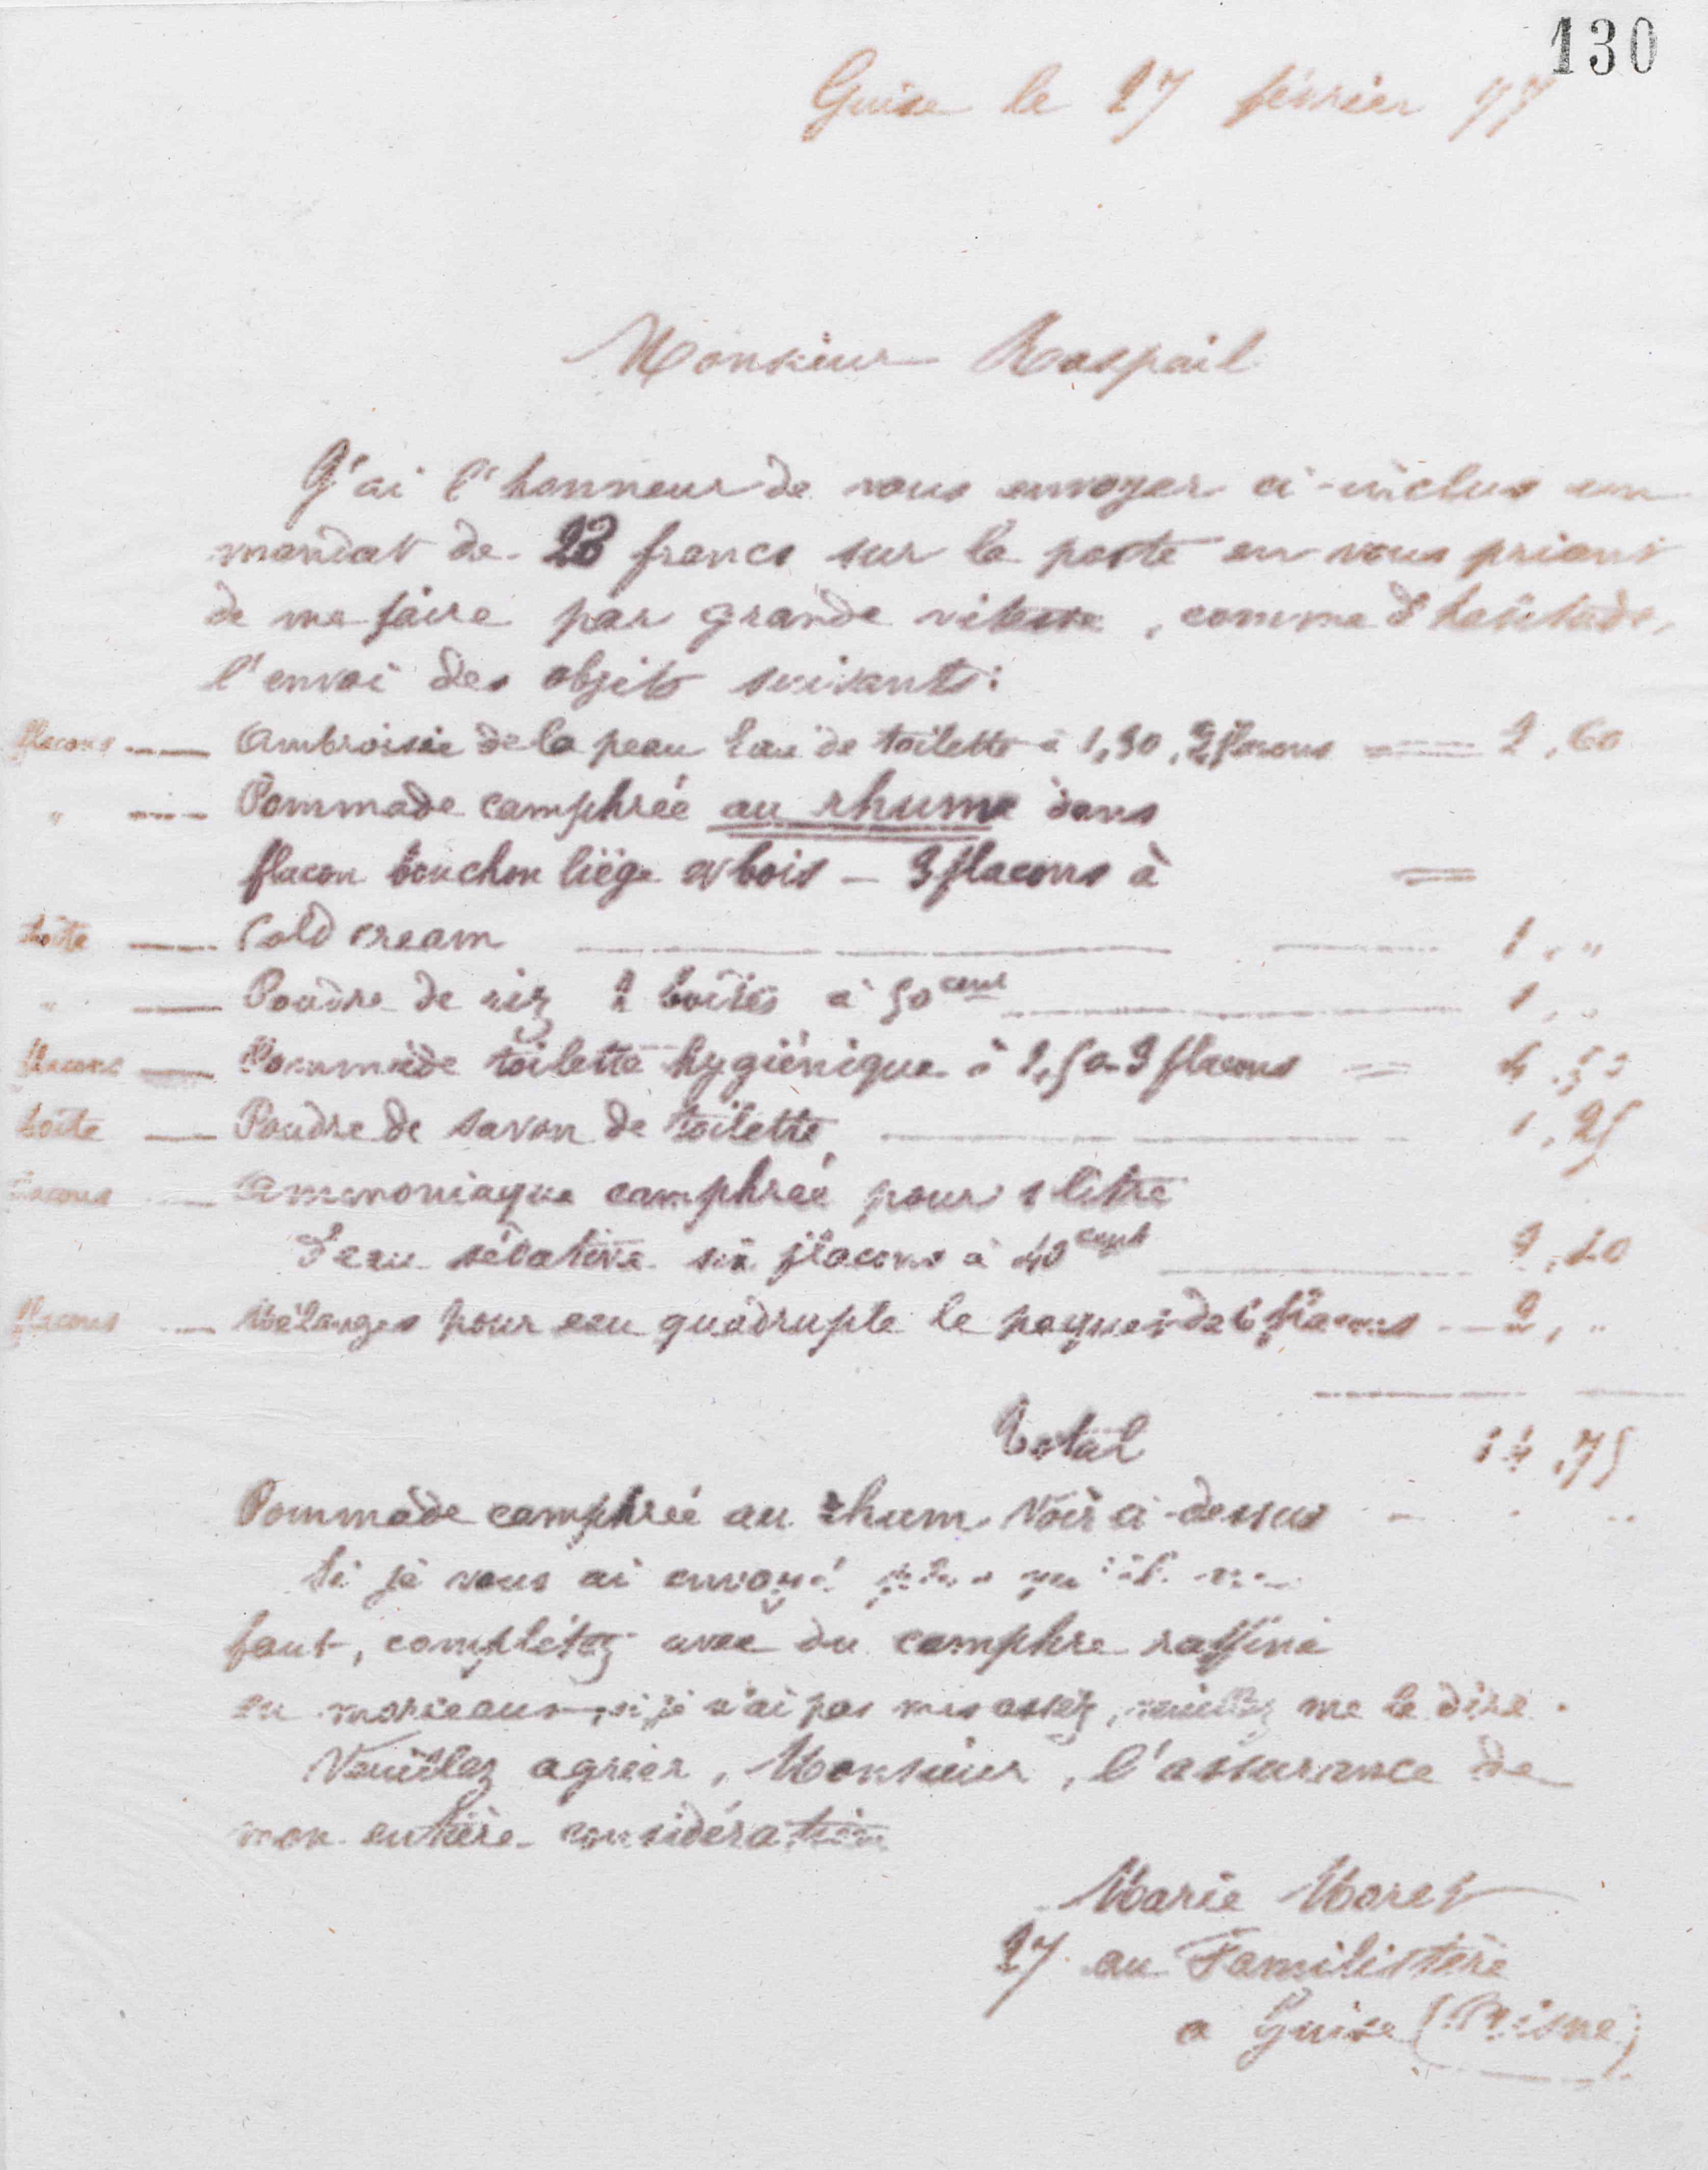 130
Guise le 27 février 97
Monsieur Raspail
J'ai l'honneur de vous envoyer ci-inclus un
mandat de 20 francs sur la poste en vous priant
de me faire par grande vitesse, comme d'habitude,
l'envoi des objets suivants:
flacons — Ambroisie de la peau Eau de toilette à 1,30, 2 flacons = 2,60
" — Pommade camphrée au rhume dans
flacon bouchon liège et bois — 3 flacons à =
boîte — Cold cream — 1, "
" — Poudre de riz 2 boîtes à 50 cent — 1, "
flacons — Pommade toilette hygiénique à 1,50 3 flacons = 4,50
boîte — Poudre de savon de toilette — 1,25
flacons — Ammoniaque camphrée pour 1 litre
d'eau sédative six flacons à 40 cent — 2,40
flacons — Mélanges pour eau quadruple le paquet de 6 flacons — 2, "
Total 14,75
Pommade camphrée au rhum. Voir ci-dessus - . "
Si je vous ai envoyé
faut, complétez avec du camphre raffiné
en morceaux, si je n'ai pas mis assez, veuillez me le dire.
Veuillez agréer, Monsieur, l'assurance de
mon entière considération
Marie Moret
27 au Familistère
à Guise (Aisne)